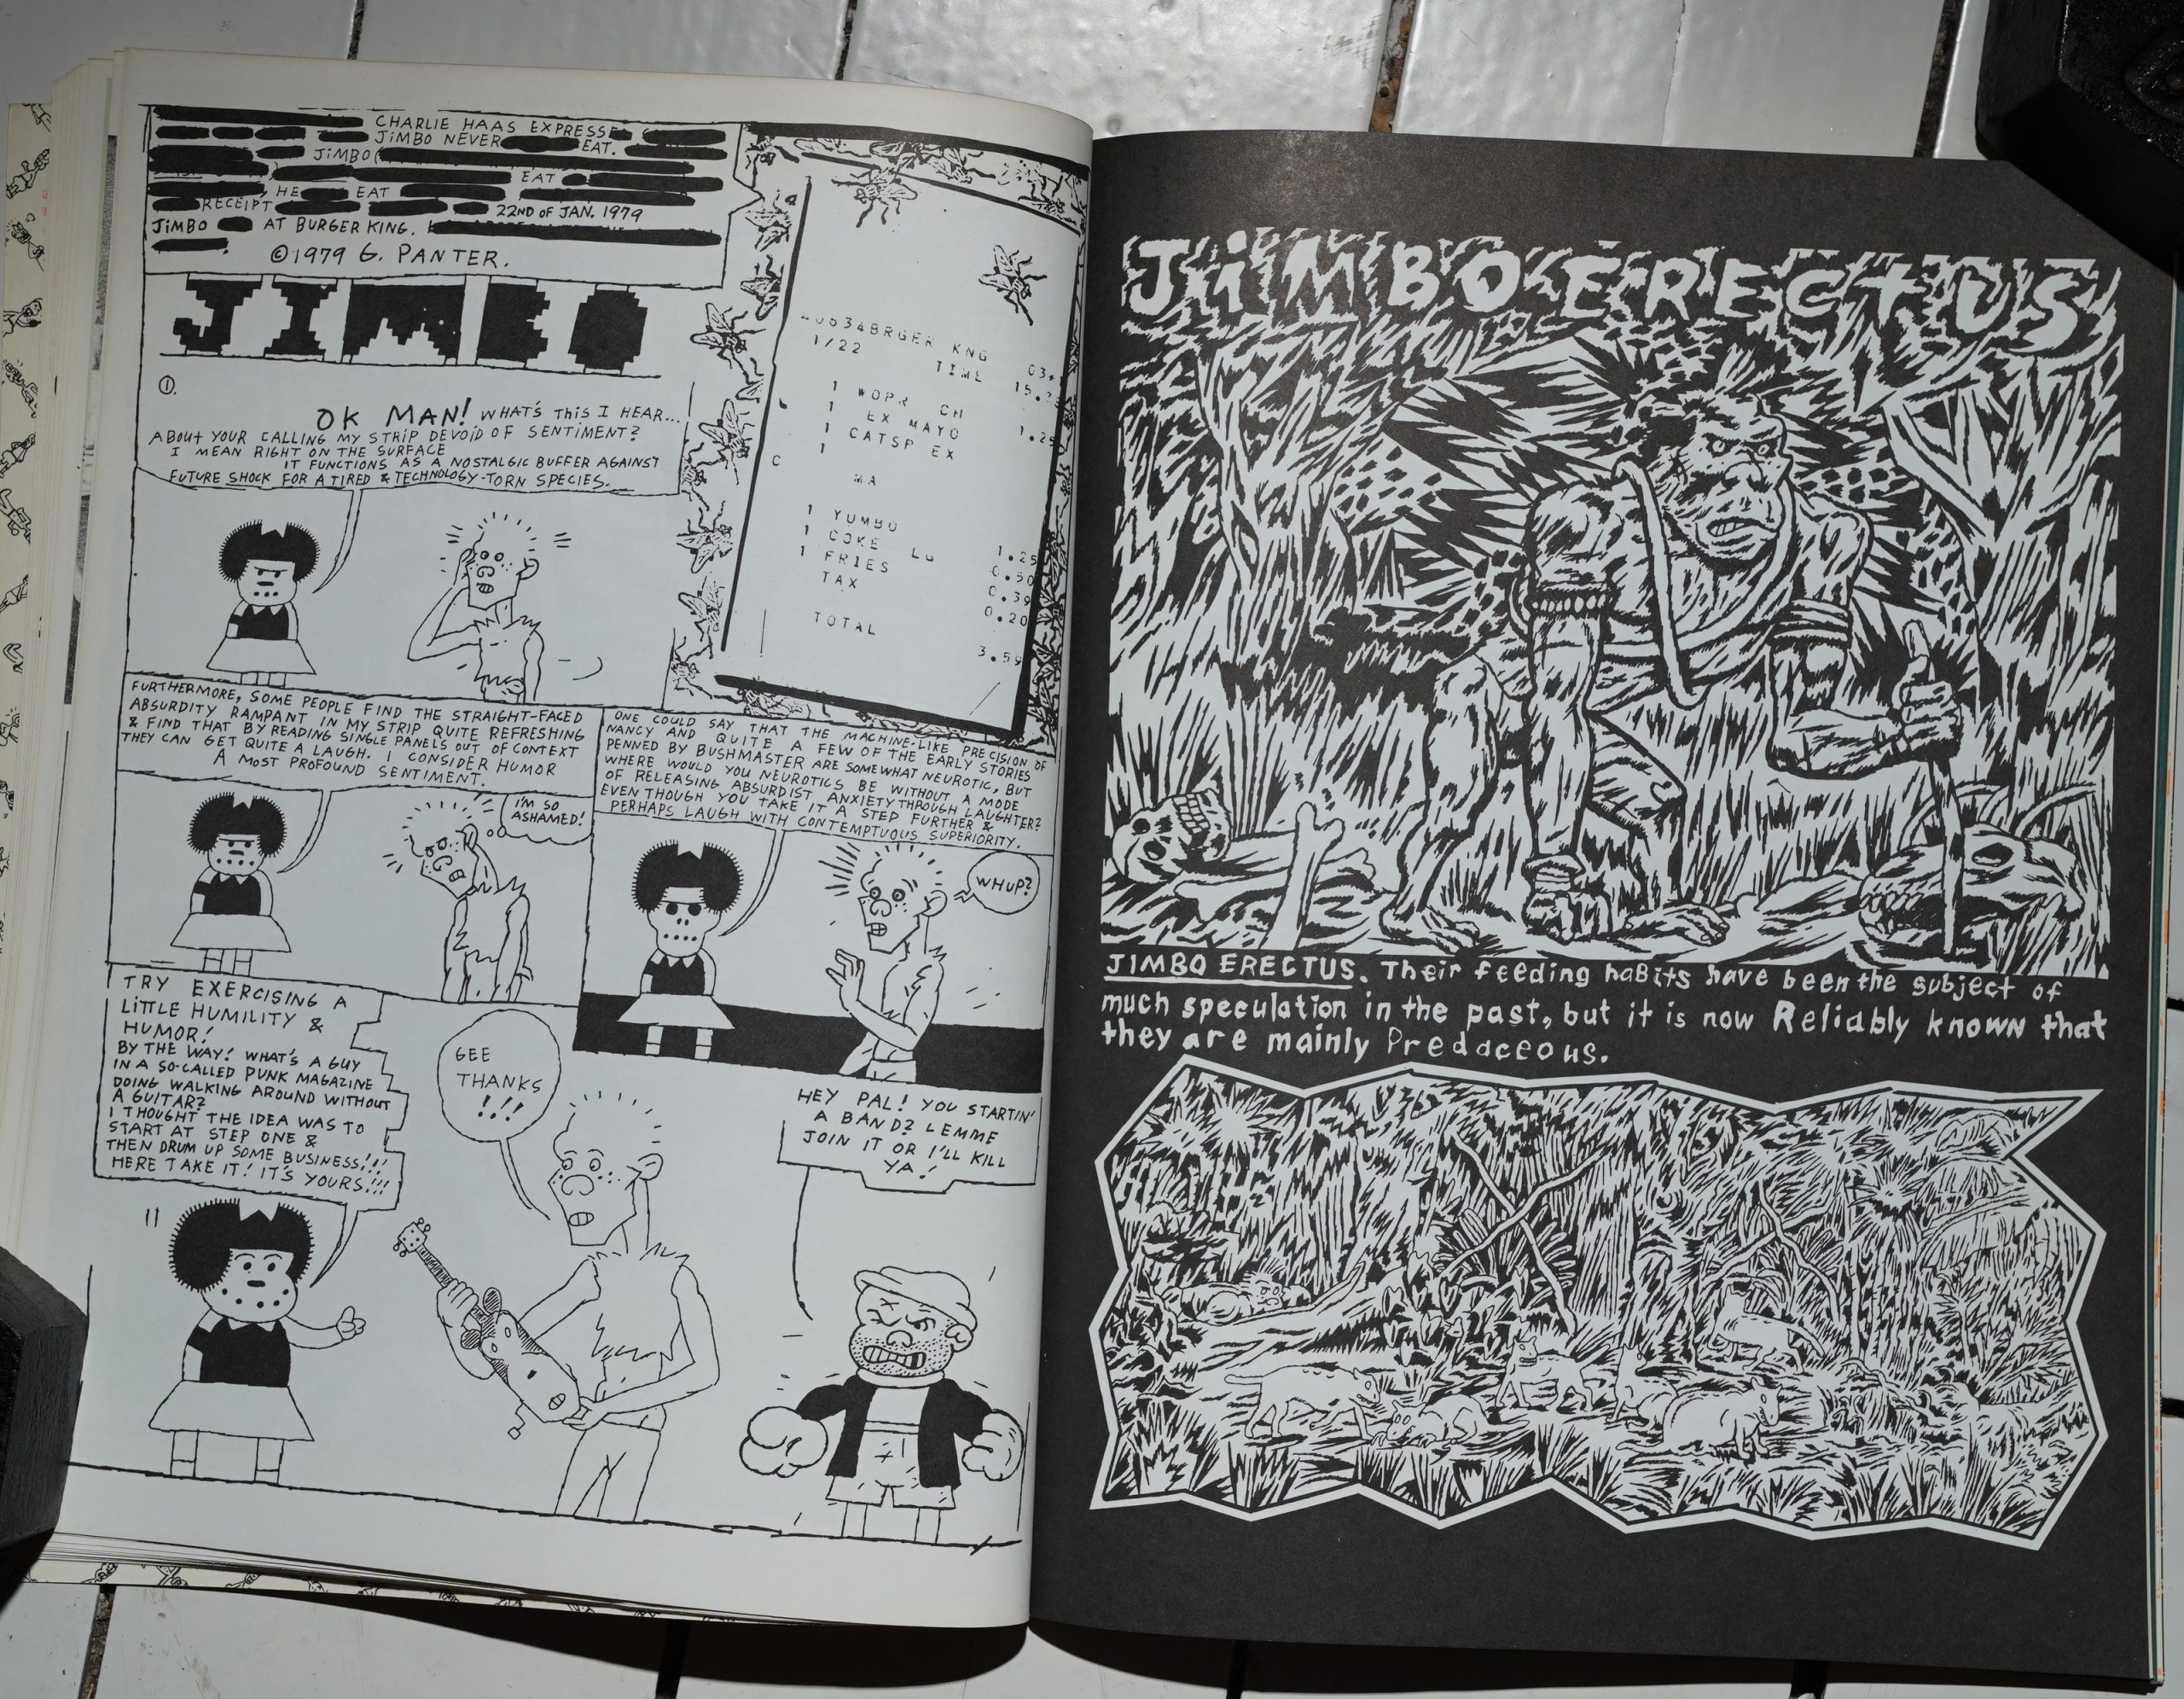 CHARLIE HAAS EXPRESSE
JIMBO NEVER EAT.
JIMBO
EAT
HE EAT
RECEIPT 22ND OF JAN. 1979
JIMBO AT BURGER KING.
©1979 G. PANTER.
JIMBO
①.
OK MAN! WHAT'S THIS I HEAR...
ABOUT YOUR CALLING MY STRIP DEVOID OF SENTIMENT?
I MEAN RIGHT ON THE SURFACE
IT FUNCTIONS AS A NOSTALGIC BUFFER AGAINST
FUTURE SHOCK FOR A TIRED & TECHNOLOGY-TORN SPECIES.
BRGER KNG
1/22 TIME
1 WOPR CH
1 EX MAYO 1.25
1 CATSP EX
1
C
MA
1 YUMBO 1.25
1 COKE LG 0.50
1 FRIES 0.39
TAX 0.20
TOTAL 3.59
FURTHERMORE, SOME PEOPLE FIND THE STRAIGHT-FACED
ABSURDITY RAMPANT IN MY STRIP QUITE REFRESHING
& FIND THAT BY READING SINGLE PANELS OUT OF CONTEXT
THEY CAN GET QUITE A LAUGH. I CONSIDER HUMOR
A MOST PROFOUND SENTIMENT.
I'M SO
ASHAMED!
ONE COULD SAY THAT THE MACHINE-LIKE PRECISION OF
NANCY AND QUITE A FEW OF THE EARLY STORIES
PENNED BY BUSHMASTER ARE SOMEWHAT NEUROTIC, BUT
WHERE WOULD YOU NEUROTICS BE WITHOUT A MODE
OF RELEASING ABSURDIST ANXIETY THROUGH LAUGHTER?
EVEN THOUGH YOU TAKE IT A STEP FURTHER &
PERHAPS LAUGH WITH CONTEMPTUOUS SUPERIORITY.
WHUP?
TRY EXERCISING A
LITTLE HUMILITY &
HUMOR!
BY THE WAY! WHAT'S A GUY
IN A SO-CALLED PUNK MAGAZINE
DOING WALKING AROUND WITHOUT
A GUITAR?
I THOUGHT THE IDEA WAS TO
START AT STEP ONE &
THEN DRUM UP SOME BUSINESS!!!
HERE TAKE IT! IT'S YOURS!!!
GEE
THANKS
!!!!
HEY PAL! YOU STARTIN'
A BAND? LEMME
JOIN IT OR I'LL KILL
YA!
JIMBO ERECTUS
JIMBO ERECTUS. Their feeding habits have been the subject of
much speculation in the past, but it is now Reliably known that
they are mainly Predaceous.